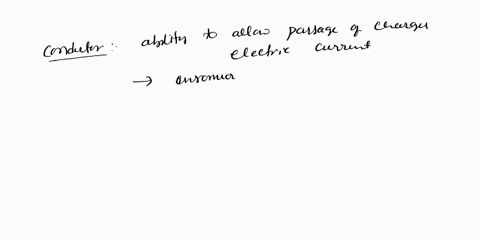 Conductor: ability to allow passage of charges
electric current
→